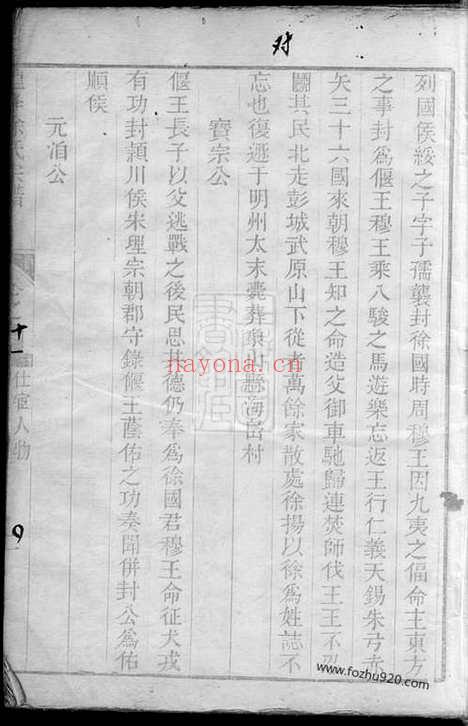 对
列國侯綏之子字子孺襲封徐國時周穆王因九夷之偪命主東方
之事封為偃王穆王乘八駿之馬遊樂忘返王行仁義天錫朱弓赤
矢三十六國來朝穆王知之命造父御車馳歸連楚師伐王王不忍
鬭其民北走彭城武原山下從者萬餘家散處徐揚以徐為姓誌不
忘也復遯于明州太末薨葬象山海嵒村
寶宗公
偃王長子以父逃戰之後民思其德仍奉為徐國君穆王命征犬戎
有功封潁川侯宋理宗朝郡守錄偃王蔭佑之功奏聞併封公為佑
順侯
元洎公
徐氏宗譜
十一
仕宦人物
9
nayona.cn
www.fozhu920.com